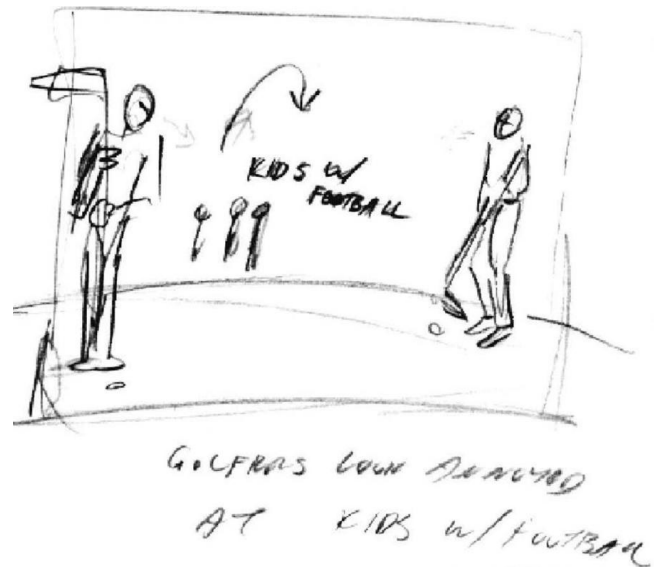 3
KIDS W/
FOOTBALL
GOLFERS LOOK ANNOYED
AT KIDS W/ FOOTBALL